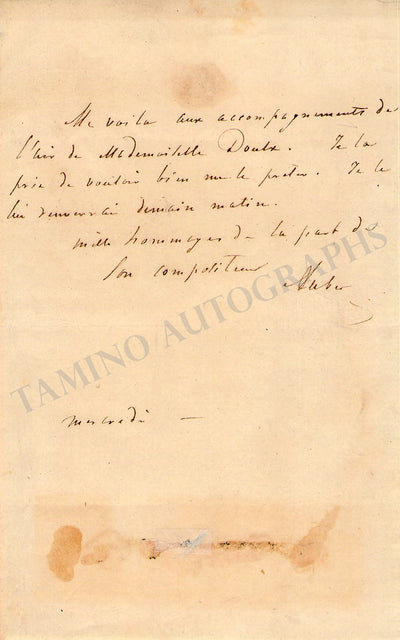 Me voila aux accompagnements de
l'air de Mademoiselle Doulx. Je la
prie de vouloir bien me le preter. Je le
lui renverrai demain matin.
mille hommages de la part de
Son compositeur Auber
mercredi —
TAMINO AUTOGRAPHS